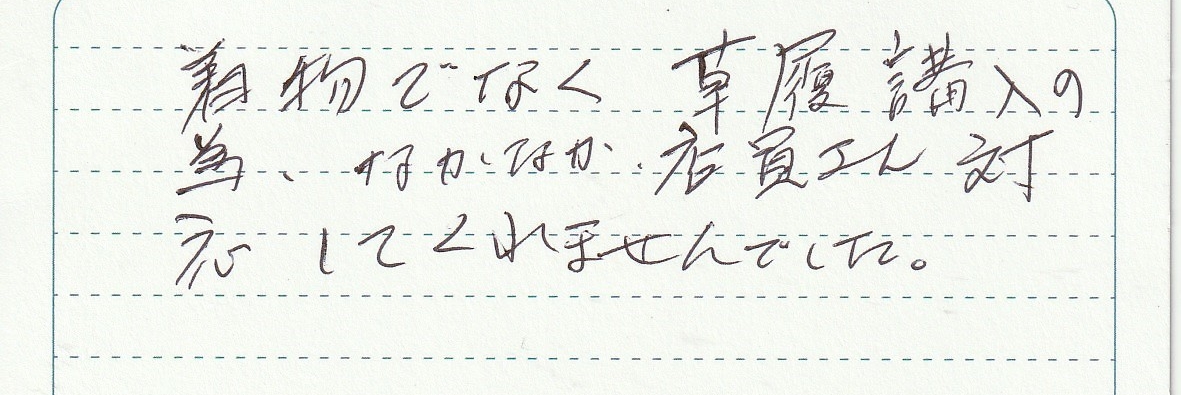 着物でなく 草履講入の
為、なかなか、店員さん 対
応してくれませんでした。